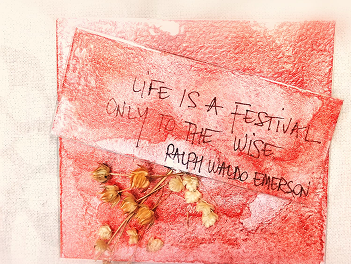 LIFE IS A FESTIVAL
ONLY TO THE WISE.
RALPH WALDO EMERSON